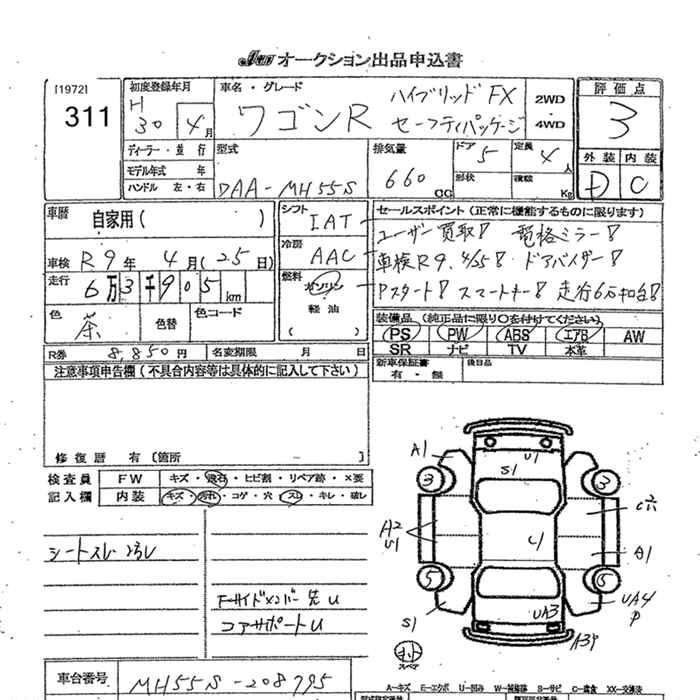 JU オークション出品申込書
[1972]
311
初度登録年月
H
30 4月
車名・グレード
ワゴンR ハイブリッド FX
セーフティパッケージ
2WD
4WD
評価点
3
外装 内装
D C
ディーラー・並行
モデル年式 年
ハンドル 左・右
型式
DAA-MH55S
排気量
660 CC
ドア
5
形状
定員
4人
積載 Kg
車歴 自家用( )
車検 R9年 4月(25日)
走行 6万3千905km
色 茶
色替
色コード
シフト IAT
冷房 AAC
燃料 ガソリン
軽油
( )
セールスポイント(正常に機能するものに限ります)
ユーザー買取! 電格ミラー!
車検R9.4/25! ドアバイザー!
Pスタート! スマートキー! 走行6万㌔台!
装備品(純正品に限り○を付けてください)
PS PW ABS エアB AW
SR ナビ TV 本革
新車保証書
有・無
後日品
R券 8,850円
名変期限 月 日
注意事項申告欄(不具合内容等は具体的に記入して下さい)
修復歴 有〔箇所 〕
検査員
記入欄
FW キズ・飛石・ヒビ割・リペア跡・×要
内装 キズ・汚れ・コゲ・穴・スレ・キレ・破レ
シートスレ
Fサイドメンバー先U
コアサポートU
A1
U1
S1
3
3
A2
U1
C1
A1
5
5
S1
UA3
UA4
P
A3P
スペア
車台番号 MH55S-208795
A-キズ E-エクボ U-凹み S-サビ C-腐食 XX-交換済